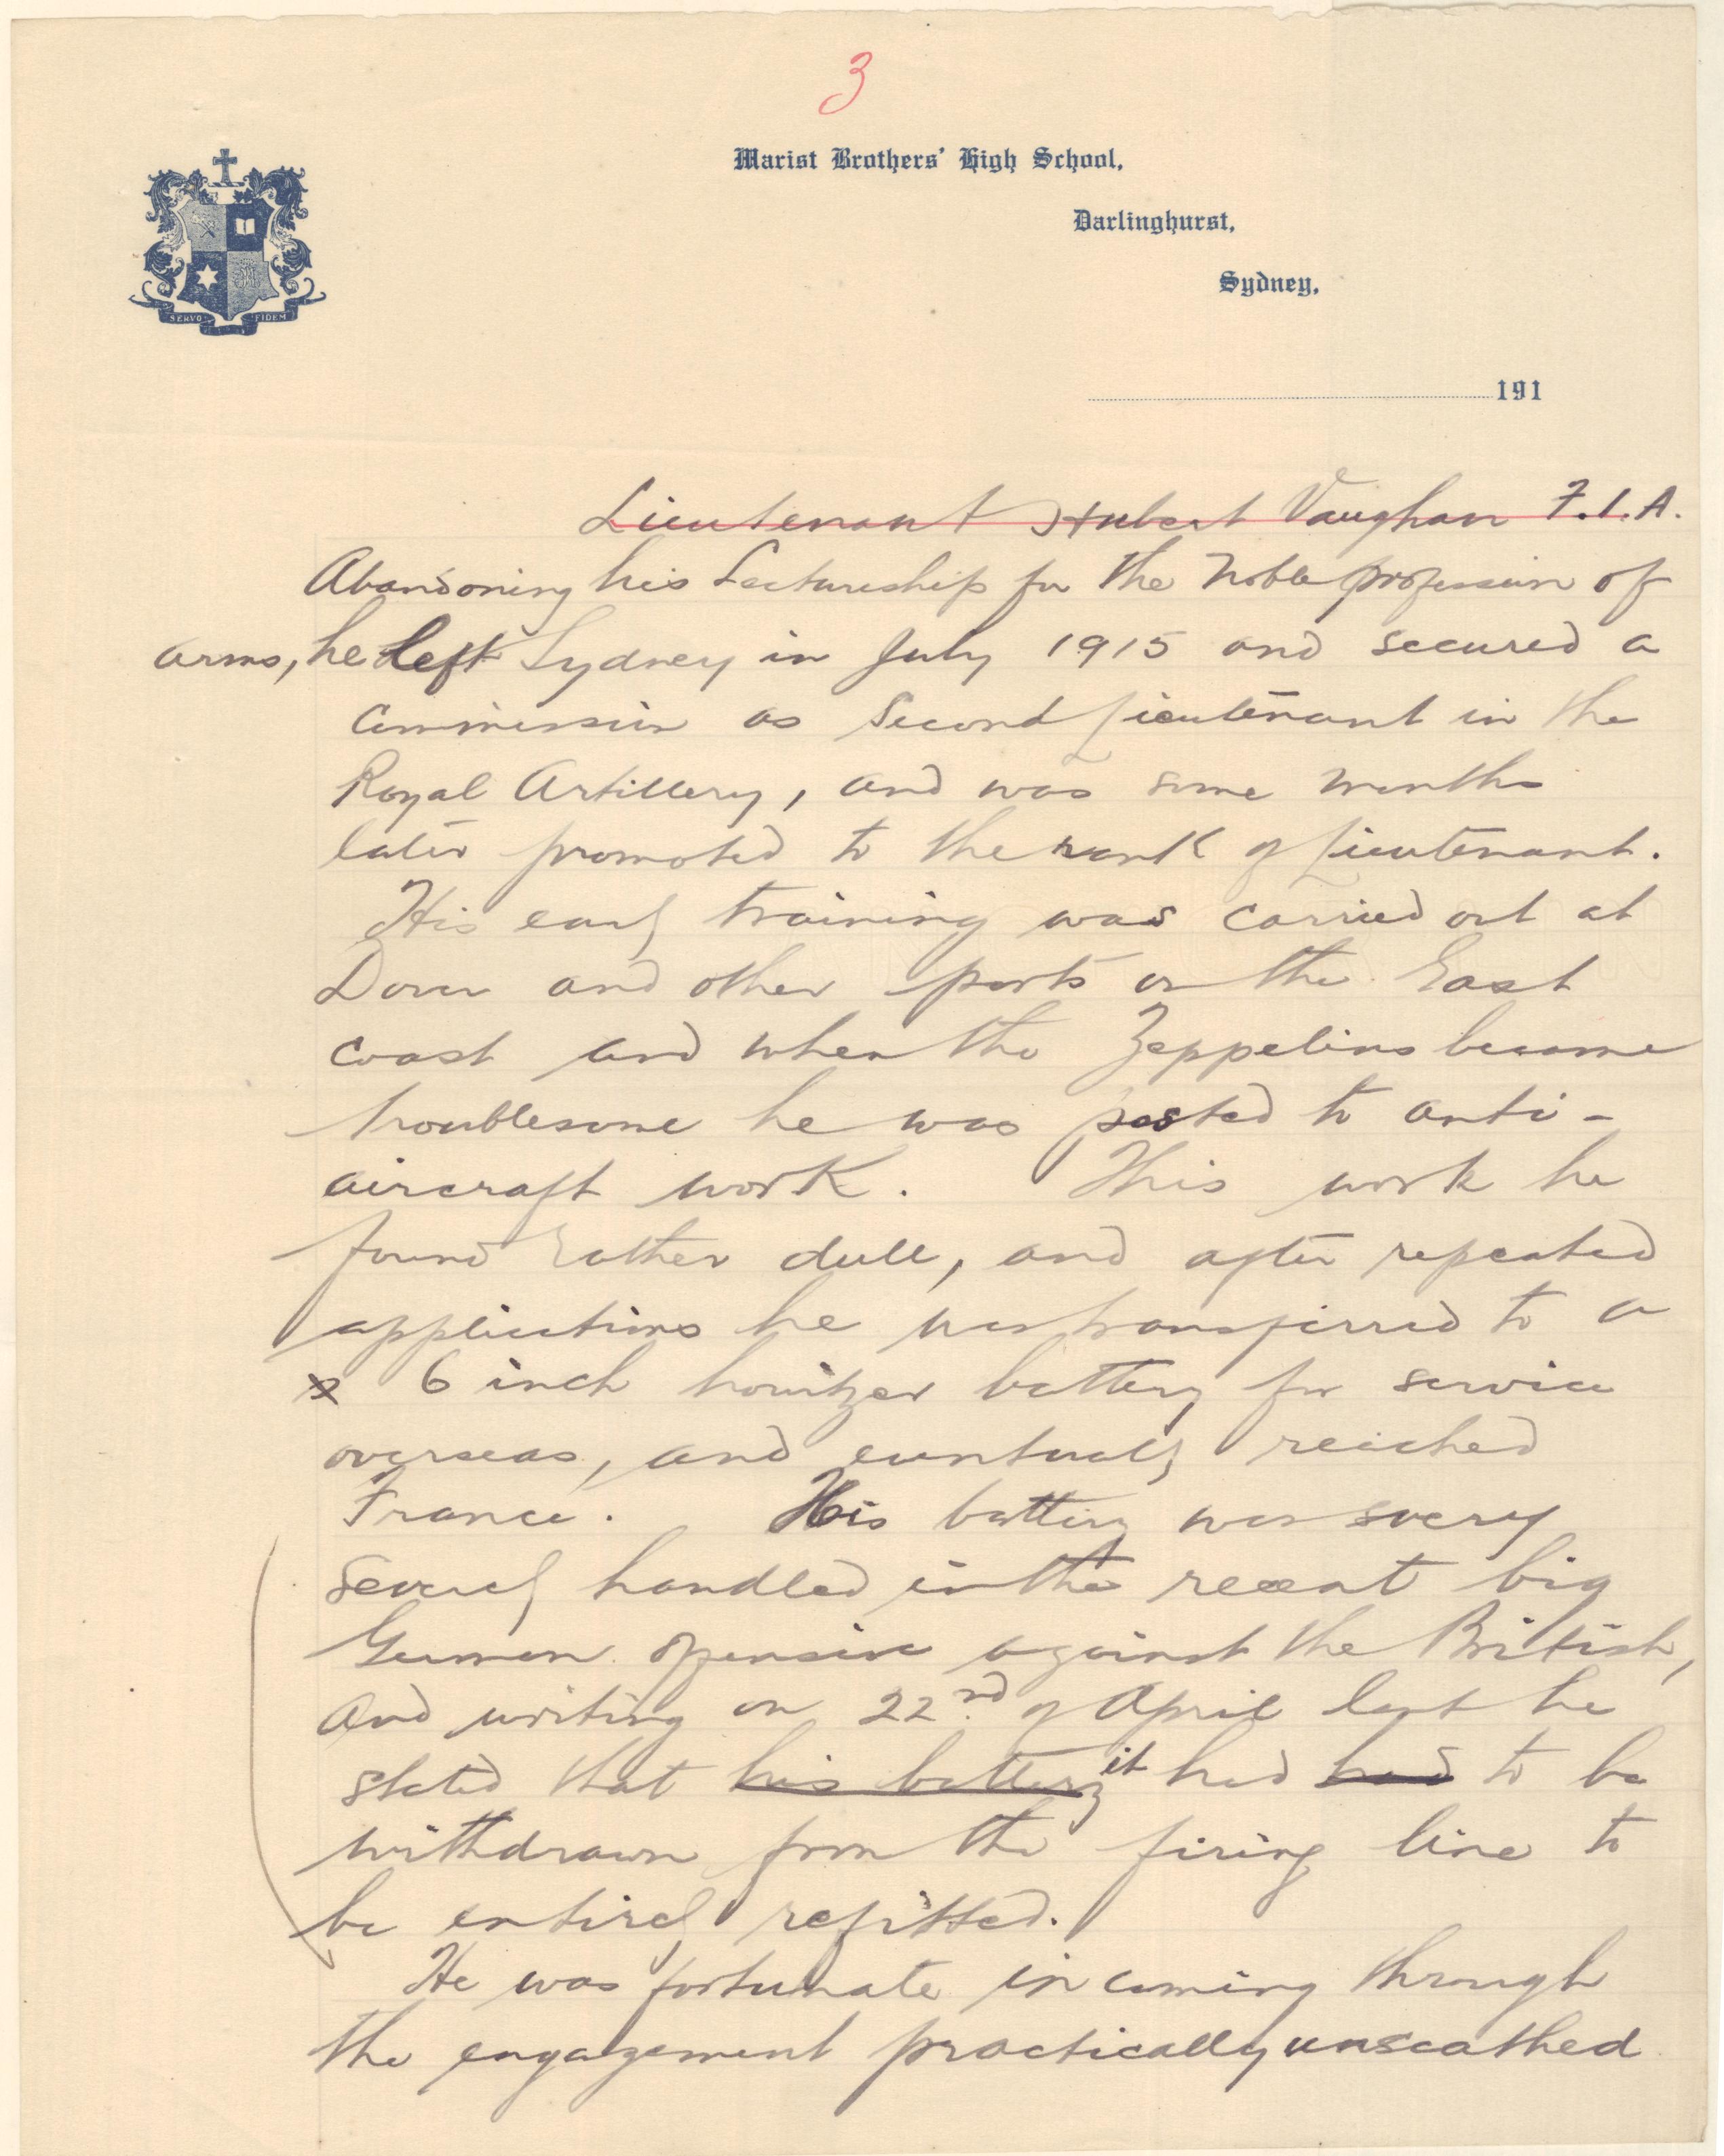 3
Marist Brothers' High School,
Darlinghurst,
Sydney,
SERVO FIDEM
191
Lieutenant Hubert Vaughan F.I.A.
Abandoning his Lectureship for the Noble profession of
arms, he left Sydney in July 1915 and secured a
Commission as Second Lieutenant in the
Royal Artillery, and was some months
later promoted to the rank of Lieutenant.
His early training was carried out at
Dover and other ports on the East
coast and when the Zeppelins became
troublesome he was posted to anti-
aircraft work. This work he
found rather dull, and after repeated
applications he was transferred to a
6 inch howitzer battery for service
overseas, and eventually reached
France. His battery was very
severely handled in the recent big
German offensive against the British,
and writing on 22nd of April last he
stated that his battery it had had to be
withdrawn from the firing line to
be entirely refitted.
He was fortunate in coming through
the engagement practically unscathed